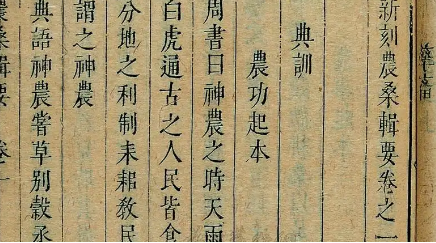 新刻農桑輯要卷之一
典訓
農功起本
周書曰神農之時天雨
白虎通古之人民皆食
分地之利制耒耜教民
謂之神農
典語神農嘗草別穀烝
農桑輯要 卷一